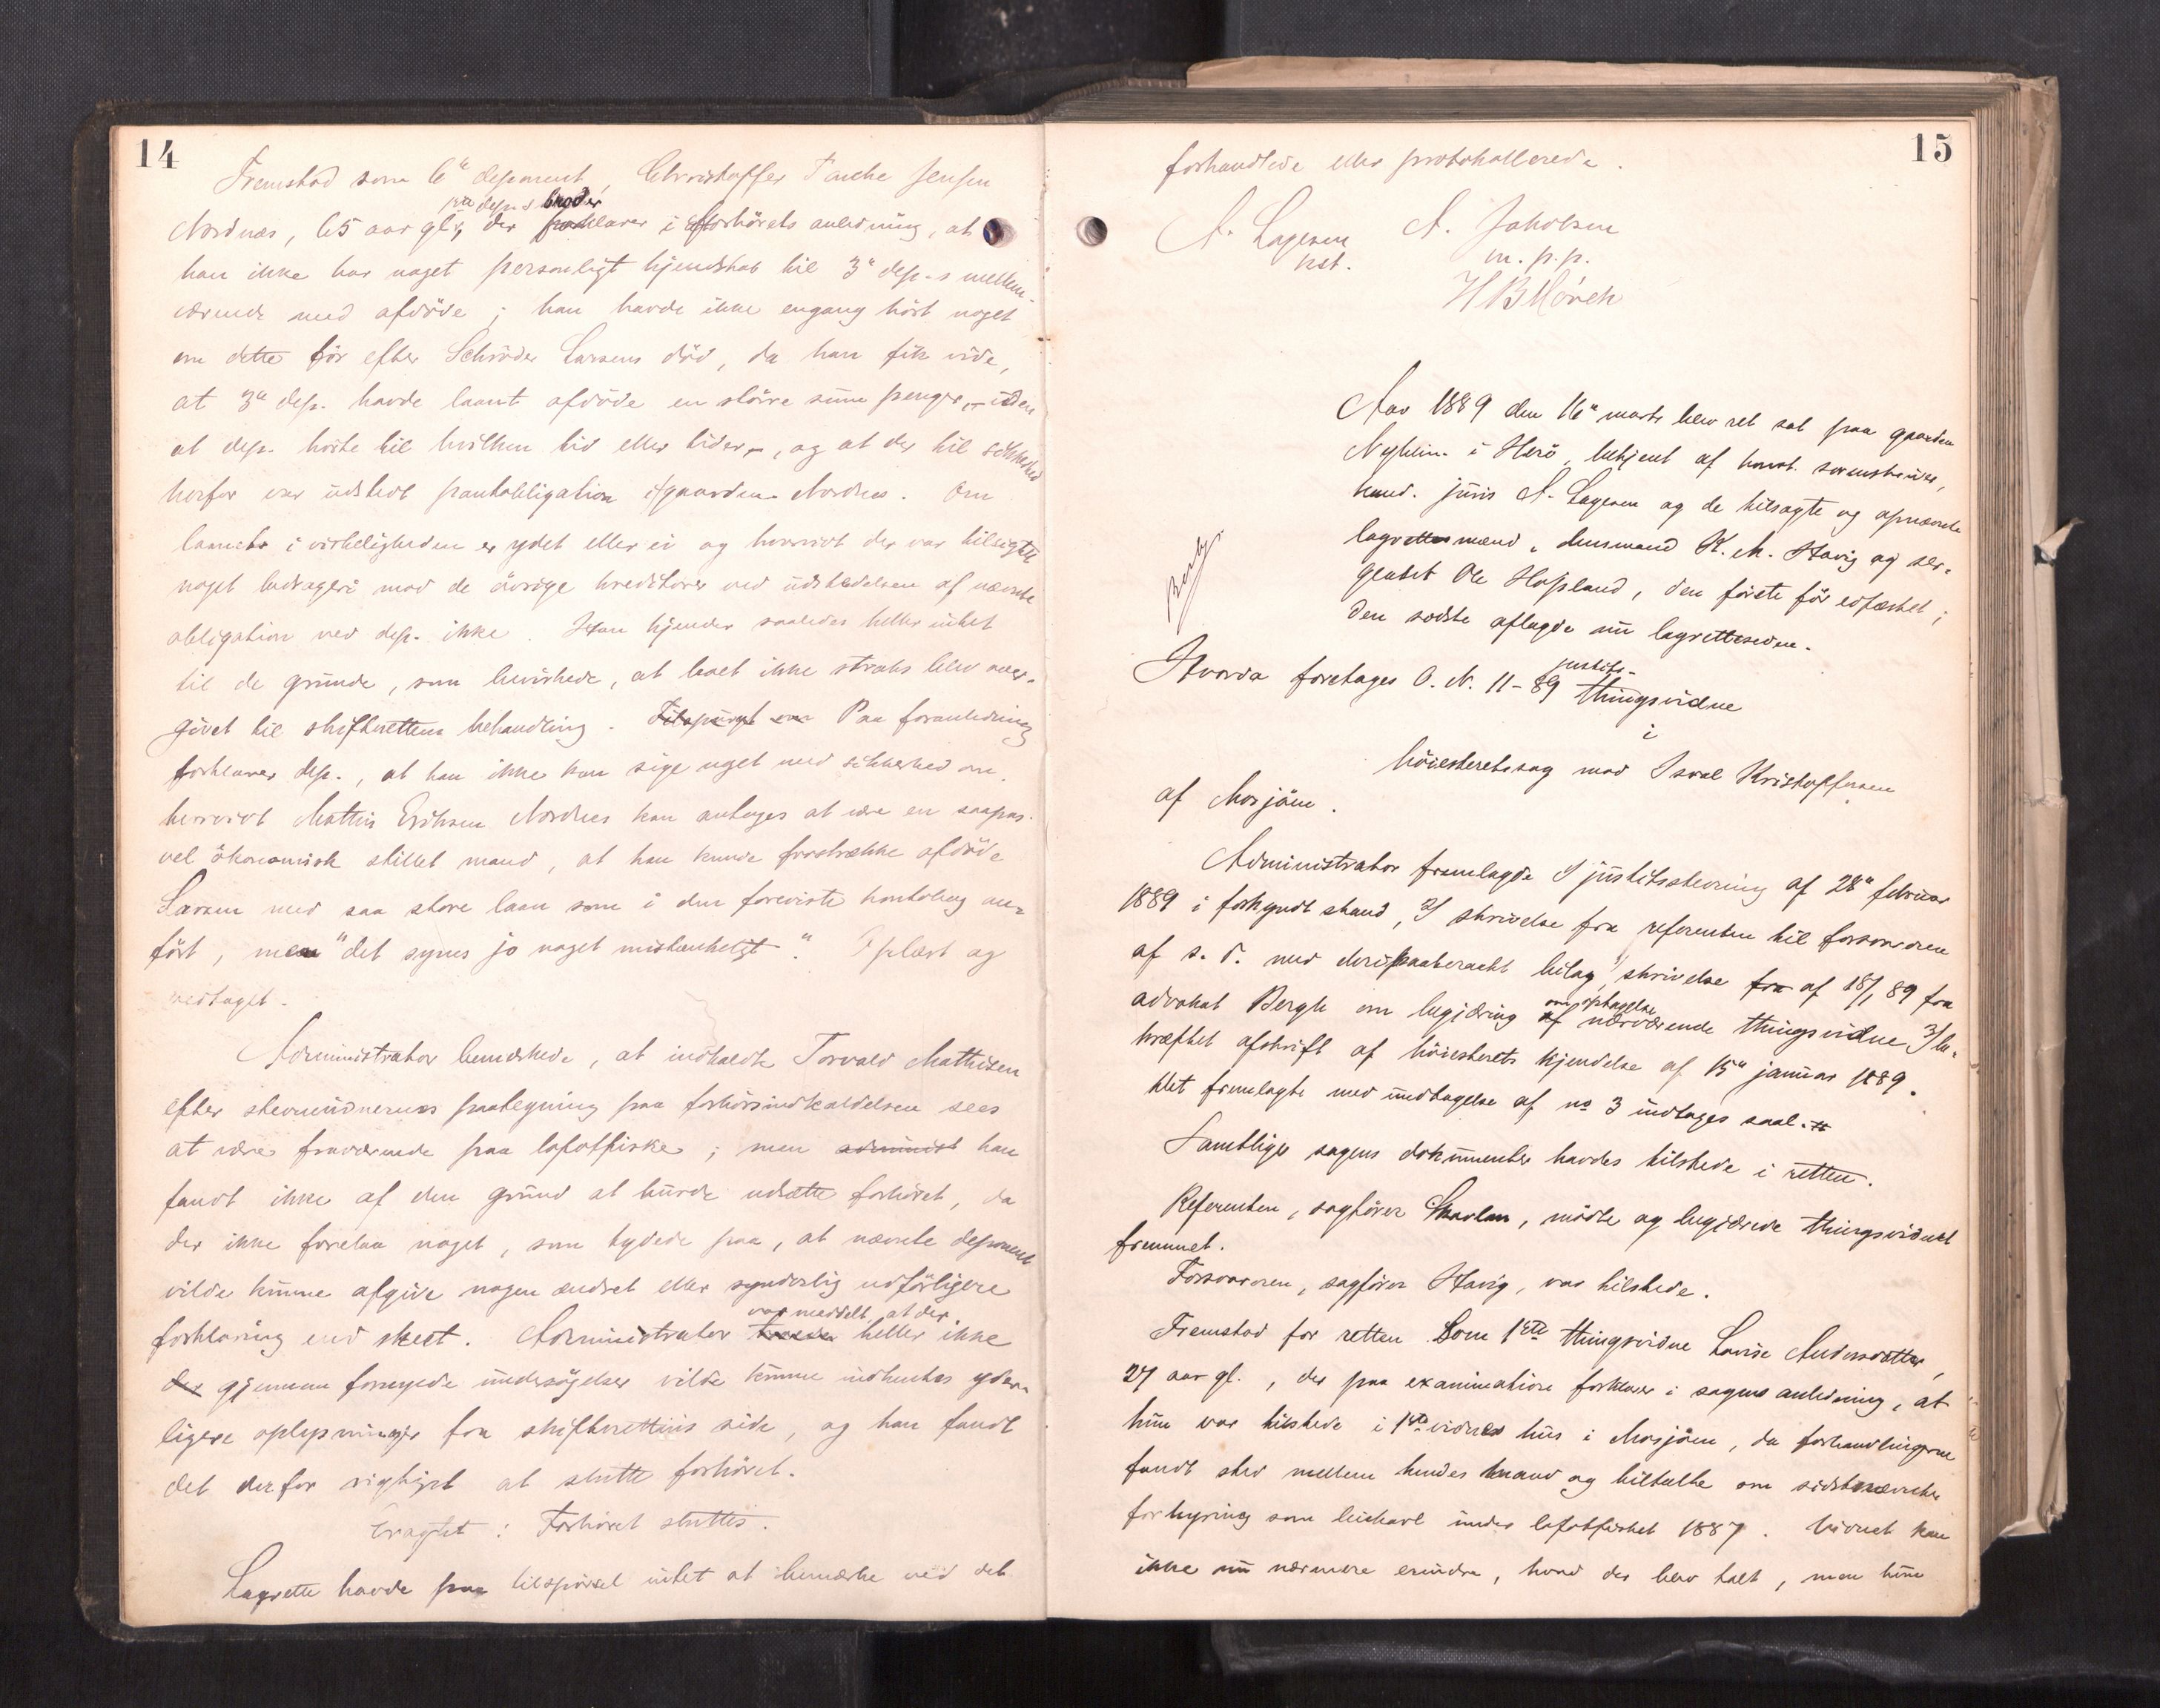 14
Fremstod som 6te deponent, Christoffer Tanche Jensen
3die dep.s broder
Nordnæs, 65 aar gl., der forklarer i forhörets anledning, at
han ikke har noget personligt kjendskab til 3die dep.s mellem-
værende med afdöde; han havde ikke engang hört noget
om dette för efter Schröder Larsens död, da han fik vide,
at 3die dep. havde laant afdöde en större sum penger, – uden
at dep. hörte til hvilken tid eller tider –, og at der til sikkerhed
herfor var udstedt pantobligation i gaarden Nordnes. Om
laanet i virkeligheden er ydet eller ei og hvorvidt der var tilsigtet
noget bedrageri mod de övrige kreditorer ved udstedelsen af nævnte
obligation ved dep. ikke. Han kjender saaledes heller intet
til de grunde, som bevirkede, at boet ikke straks blev over-
givet til skifterettens behandling. Tilspurgt om Paa foranledning
forklarer dep., at han ikke kan sige noget med sikkerhed om,
hvorvidt Mathis Eriksen Nordnes kan antages at være en saapas
vel ökonomisk stillet mand, at han kunde forstrække afdöde
Larsen med saa store laan som i den foreviste kontobog an-
fört, men "det synes jo noget mistenkeligt". Oplæst og
vedtaget.
Administrator bemerkede, at indkaldte Torvald Mathisen
efter stevnevidnernes paategning paa forhörsindkaldelsen sees
at være fraværende paa lofotfiske; men administ han
fandt ikke af den grund at burde udsætte forhöret, da
der ikke forelaa noget, som tydede paa, at nævnte deponent
vilde kunne afgive nogen ændret eller synderlig udförligere
var meddelt, at der
forklaring end skeet. Administrator heller ikke
der gjennem fornyede undersögelser vilde kunne indhentes yder-
ligere oplysninger fra skifterettens side, og han fandt
det derfor rigtigst at slutte forhöret.
Eragtet: Forhöret sluttes.
Lagrette havde paa tilspörsel intet at bemærke ved det
15
forhandlede eller protokollerede.
A. Lagesen A. Jakobsen
kst. m. p. p.
H B Mörch
Aar 1889 den 16de marts blev ret sat paa gaarden
Nyheim i Herö, betjent af konst. sorenskriver,
kand. juris A. Lagesen og de tilsagte og opnævnte
lagrettesmænd, lensmand K. M. Stavig og ser-
geant Ole Hopland, den förste för edfæstet;
den sidste aflagde nu lagretteseden.
Bergh
Hvorda foretoges O. N. 11-89 justits-
thingsvidne
i
höiesteretssag mod Isak Kristoffersen
af Mosjöen.
Administrator fremlagde 1/ justitsstevning af 28de februar
1889 i forkyndt stand, 2/ skrivelse fra referenten til forsvareren
af s. d. med deri paaberaabt bilag, skrivelse fra af 18/1 89 fra
om optagelse
advokat Bergh om begjæring af nærværende thingsvidne 3/ be-
kræftet afskrift af höiesterets kjendelse af 15de januar 1889.
Det fremlagte med undtagelse af no 3 indtages saal.
Samtlige sagens dokumenter havdes tilstede i retten.
Referenten, sagförer Skavlan, mödte og begjærede thingsvidnet
fremmet.
Forsvareren, sagförer Stavig, var tilstede.
Fremstod for retten Som 1ste thingsvidne Lovise Andersdatter,
27 aar gl., der paa examination forklarer i sagens anledning, at
hun var tilstede i 1ste vidnes hus i Mosjöen, da forhandlingerne
fandt sted mellem hendes mand og tiltalte om sidstnævntes
forhyring som leiekarl under lofotfisket 1887. Vidnet kan
ikke nu nærmere erindre, hvad der blev talt, men hun